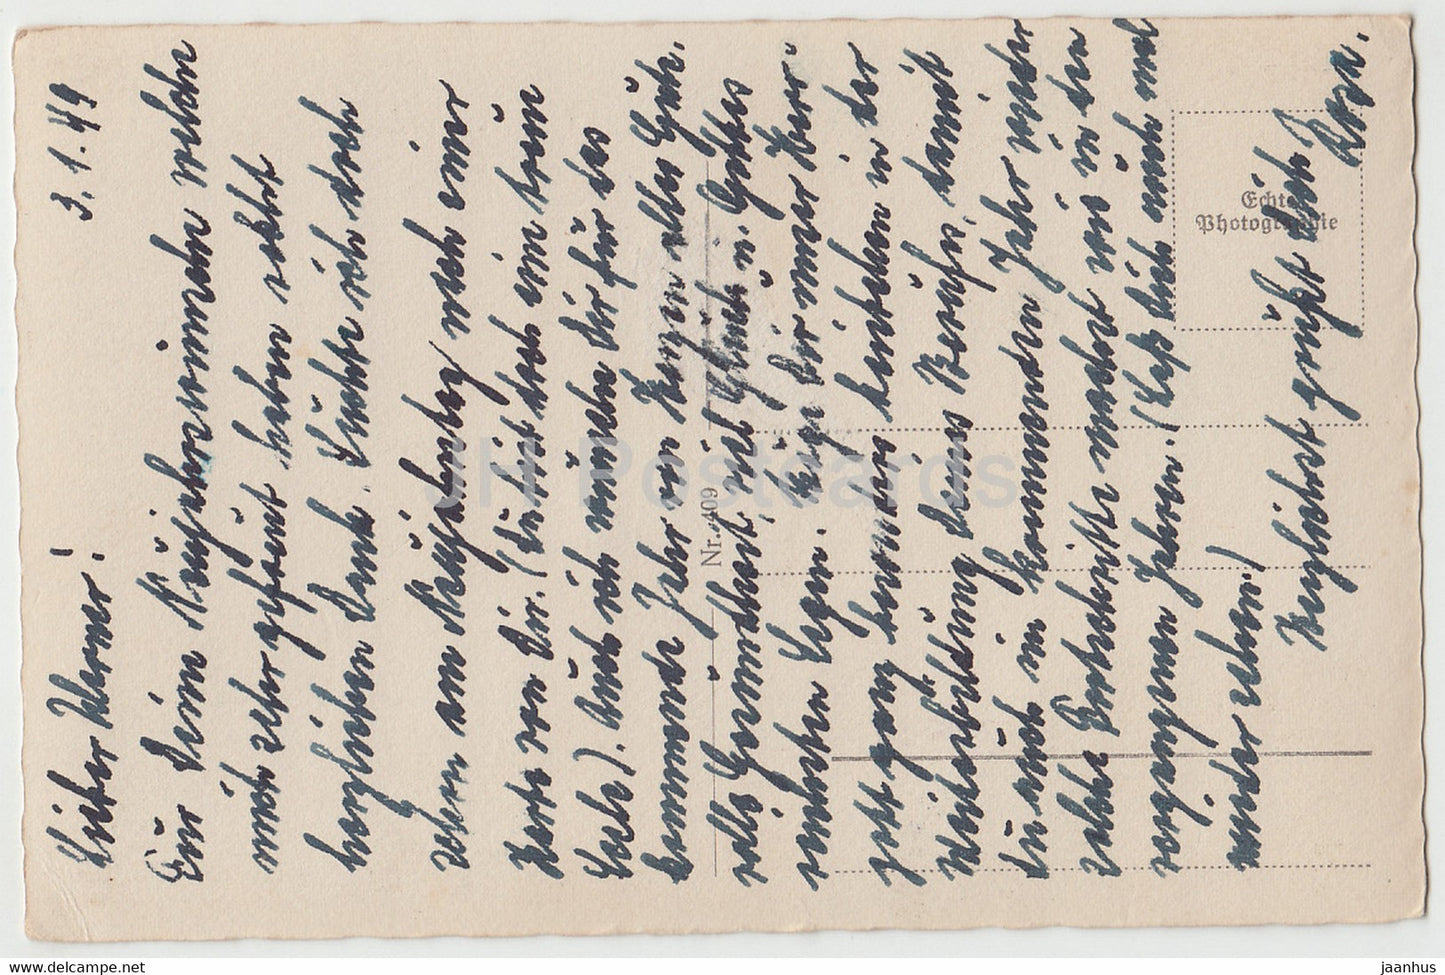 3.1.49
Lieber Werner!
Für Deine Neujahrswünsche welche
mich sehr gefreut haben sagt
herzlichen Dank. Dachte ich doch
schon am Neujahrstag noch eine
Karte von Dir. (Du bist doch eine treue
Seele). Auch ich wünsche Dir für das
kommende Jahr von Herzen alles Gute.
Gesundheit, viel Glück u. Gottes
reichsten Segen. Möge Dir unser Herr-
gott ganz besonders beistehen in der
Weiterbildung deines Berufes, damit
Du auch im kommenden Jahr wieder
solche Fortschritte machst wie in den
vergangenen Jahren. (Laß dich auch mal
wieder sehen.)
Herzlichst grüßt dich
Rosa.
Echte
Photographie
Nr. 409
JH Postcards
www.delcampe.net
jaanhus